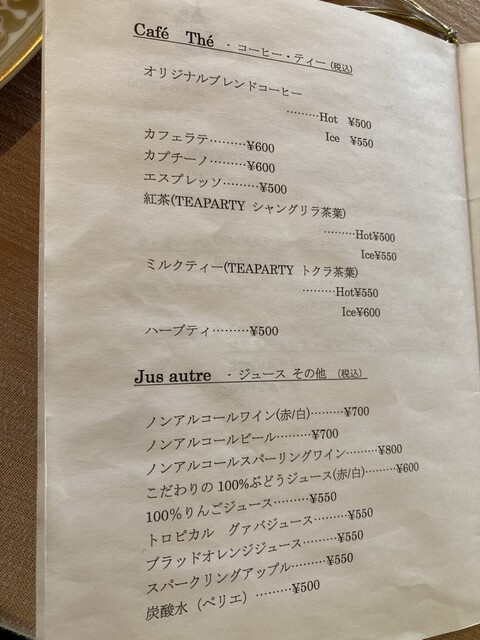 Café Thé - コーヒー・ティー (税込)
オリジナルブレンドコーヒー
………Hot ¥500
Ice ¥550
カフェラテ………¥600
カプチーノ………¥600
エスプレッソ………¥500
紅茶(TEAPARTY シャングリラ茶葉)
………Hot¥500
Ice¥550
ミルクティー(TEAPARTY トクラ茶葉)
………Hot¥550
Ice¥600
ハーブティ………¥500
Jus autre - ジュース その他 (税込)
ノンアルコールワイン(赤/白)………¥700
ノンアルコールビール………¥700
ノンアルコールスパーリングワイン………¥800
こだわりの 100%ぶどうジュース(赤/白)………¥600
100%りんごジュース………¥550
トロピカル グァバジュース………¥550
ブラッドオレンジジュース………¥550
スパークリングアップル………¥550
炭酸水（ペリエ）………¥500